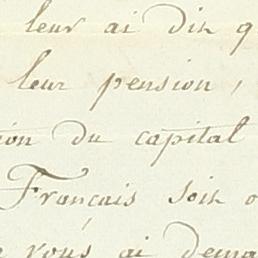 leur ai dit q
leur pension,
ion du capital
Français soit o
vous ai dema